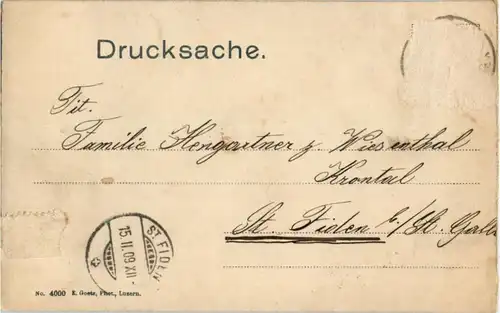 Drucksache.
Tit.
Familie Hengartner z. Wiesenthal
Krontal
St. Fiden b/St. Gall
ST. FIDEN
15. II. 09. XII-
No. 4000 E. Goetz, Phot., Luzern.